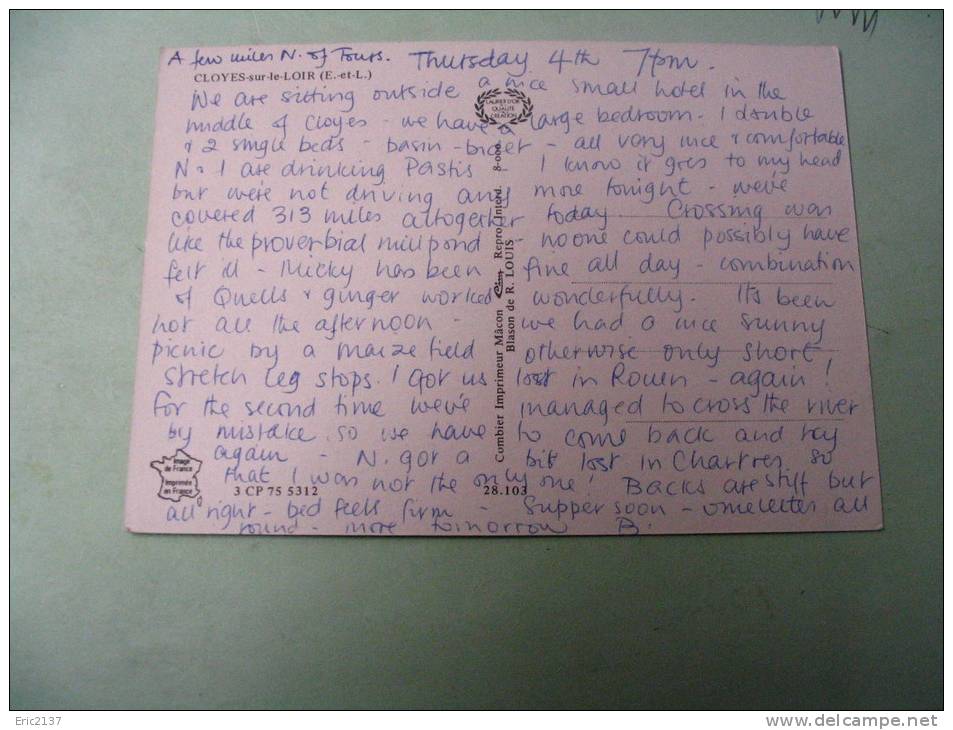 A few miles N. of Tours. Thursday 4th 7pm.
CLOYES-sur-le-LOIR (E.-et-L.)
We are sitting outside a nice small hotel in the
middle of Cloyes - we have a large bedroom - 1 double
& 2 single beds - basin - bidet - all very nice & comfortable
N & I are drinking Pastis - I know it goes to my head
but we're not driving any more tonight - we've
covered 313 miles altogether today. Crossing was
like the proverbial millpond - no one could possibly have
felt ill - Micky has been fine all day - combination
of Quells & ginger worked wonderfully. Its been
hot all the afternoon - we had a nice sunny
picnic by a maize field otherwise only short
stretch leg stops. I got us lost in Rouen - again!
For the second time we've managed to cross the river
by mistake so we have to come back and try
again - N. got a bit lost in Chartres so
that I was not the only one! Backs are stiff but
all right - bed feels firm - Supper soon - omelettes all
round - more tomorrow B.
LAURIER D'OR
DE LA
QUALITE
CREATION
Combier Imprimeur Mâcon Cim Repro. Interd. 8-000
Blason de R. LOUIS
Image
de France
Imprimée
en France
3 CP 75 5312
28.103
Eric2137
www.delcampe.net